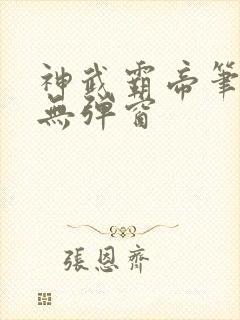 神武霸帝筆
無彈窗
張恩齊